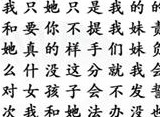 我只她只是我的的
和要你不提我妹责
她真的样手们妹负
么什没这分就我会
对女孩子会不发誓
次我和她法办没